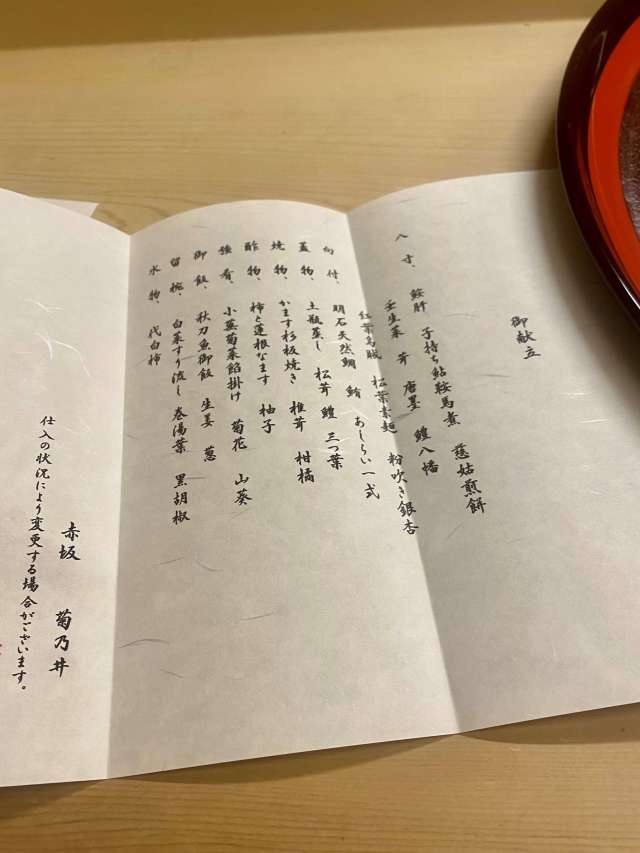 御献立
八寸、 鮟肝 子持ち鮎鞍馬煮 慈姑煎餅
壬生菜 茸 唐墨 鱧八幡
紅葉烏賊 松葉素麺 粉吹き銀杏
向付、 明石天然鯛 鮪 あしらい一式
蓋物、 土瓶蒸し 松茸 鱧 三つ葉
焼物、 かます杉板焼き 椎茸 柑橘
酢物、 柿と蓮根なます 柚子
強肴、 小蕪菊菜餡掛け 菊花 山葵
御飯、 秋刀魚御飯 生姜 葱
留椀、 白菜すり流し 巻湯葉 黒胡椒
水物、 代白柿
赤坂 菊乃井
仕入の状況により変更する場合がございます。